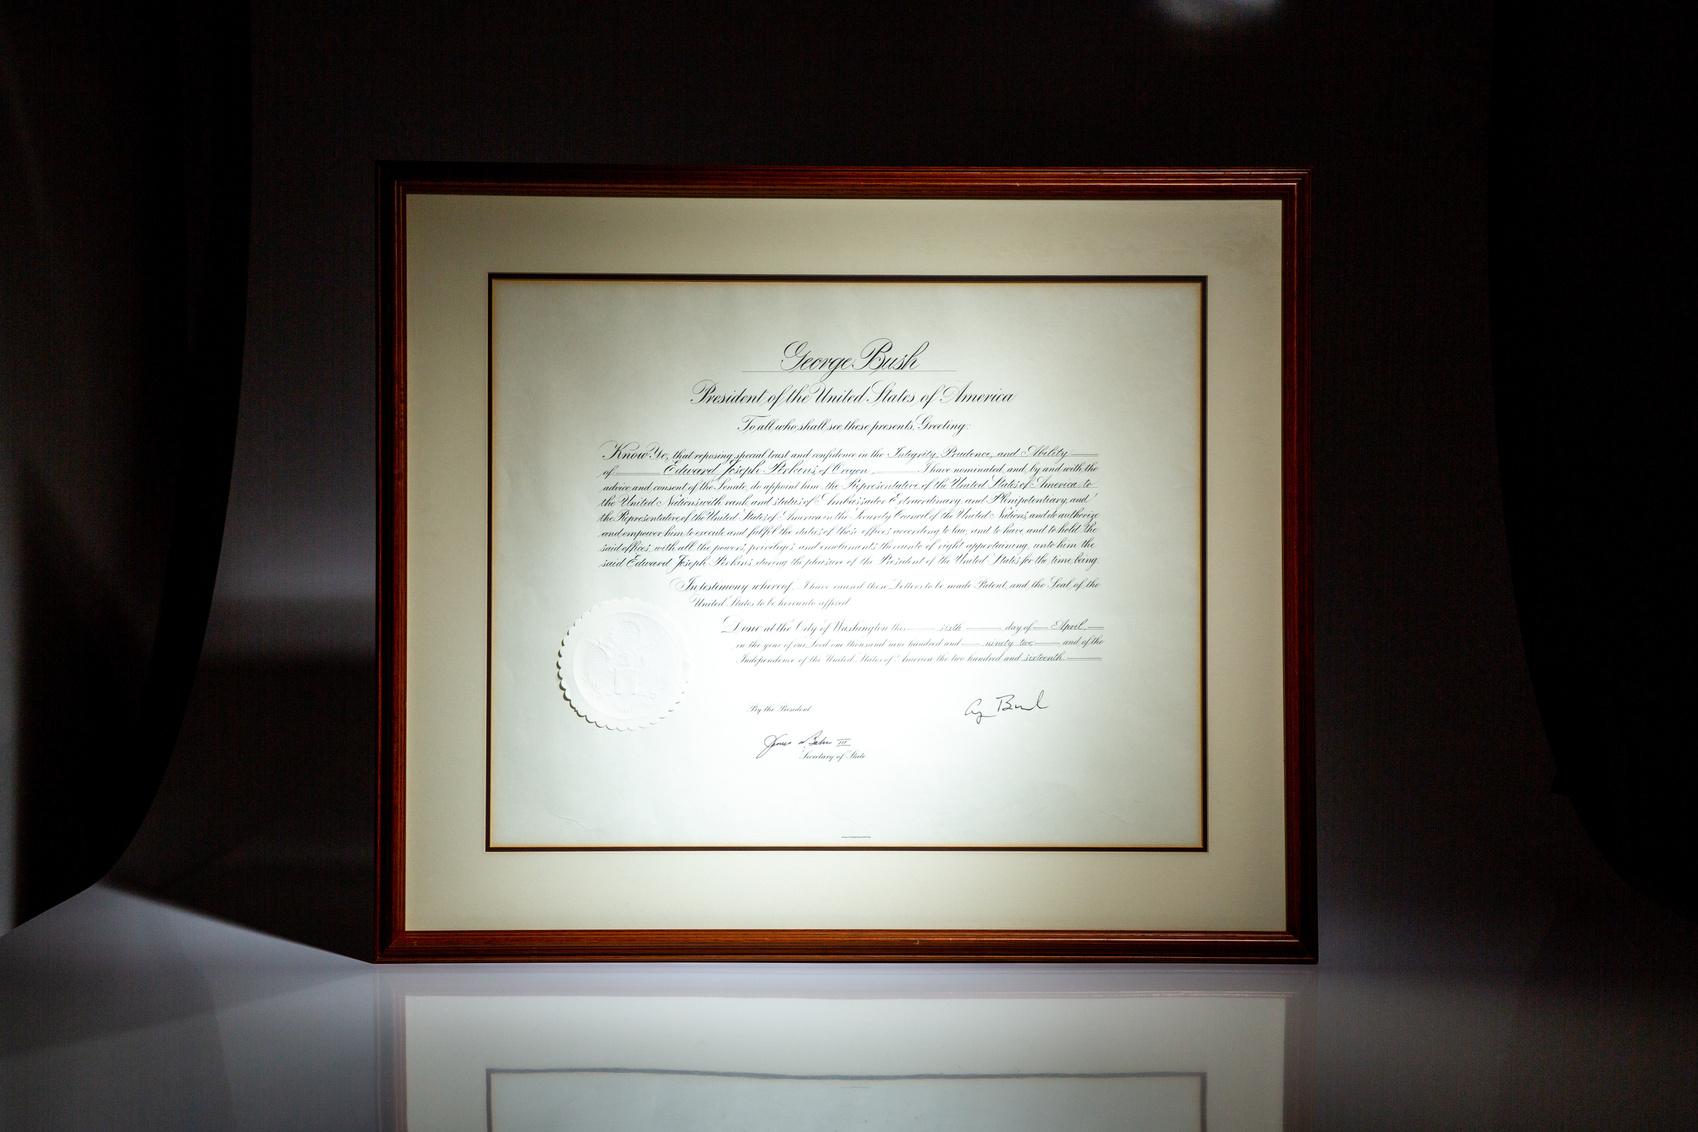 George Bush
President of the United States of America
To all who shall see these presents, Greeting:
Know Ye, that reposing special trust and confidence in the Integrity, Prudence, and Ability
of Edward Joseph Perkins, of Oregon, I have nominated, and, by and with the
advice and consent of the Senate, do appoint him the Representative of the United States of America to
the United Nations with rank and status of Ambassador Extraordinary and Plenipotentiary, and
the Representative of the United States of America in the Security Council of the United Nations, and do authorize
and empower him to execute and fulfil the duties of those offices according to law, and to have and to hold the
said offices, with all the powers, privileges and emoluments thereunto of right appertaining, unto him the
said Edward Joseph Perkins, during the pleasure of the President of the United States for the time being.
In testimony whereof, I have caused these Letters to be made Patent, and the Seal of the
United States to be hereunto affixed.
Done at the City of Washington this sixth day of April
in the year of our Lord one thousand nine hundred and ninety-two and of the
Independence of the United States of America the two hundred and sixteenth
By the President:
G Bush
James A. Baker III
Secretary of State